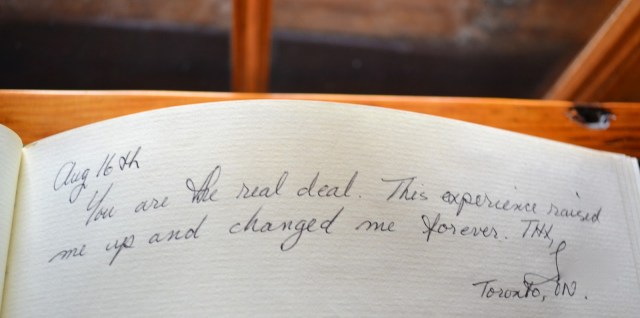 Aug 16th
You are the real deal. This experience raised
me up and changed me forever. THX,
Toronto, ON.